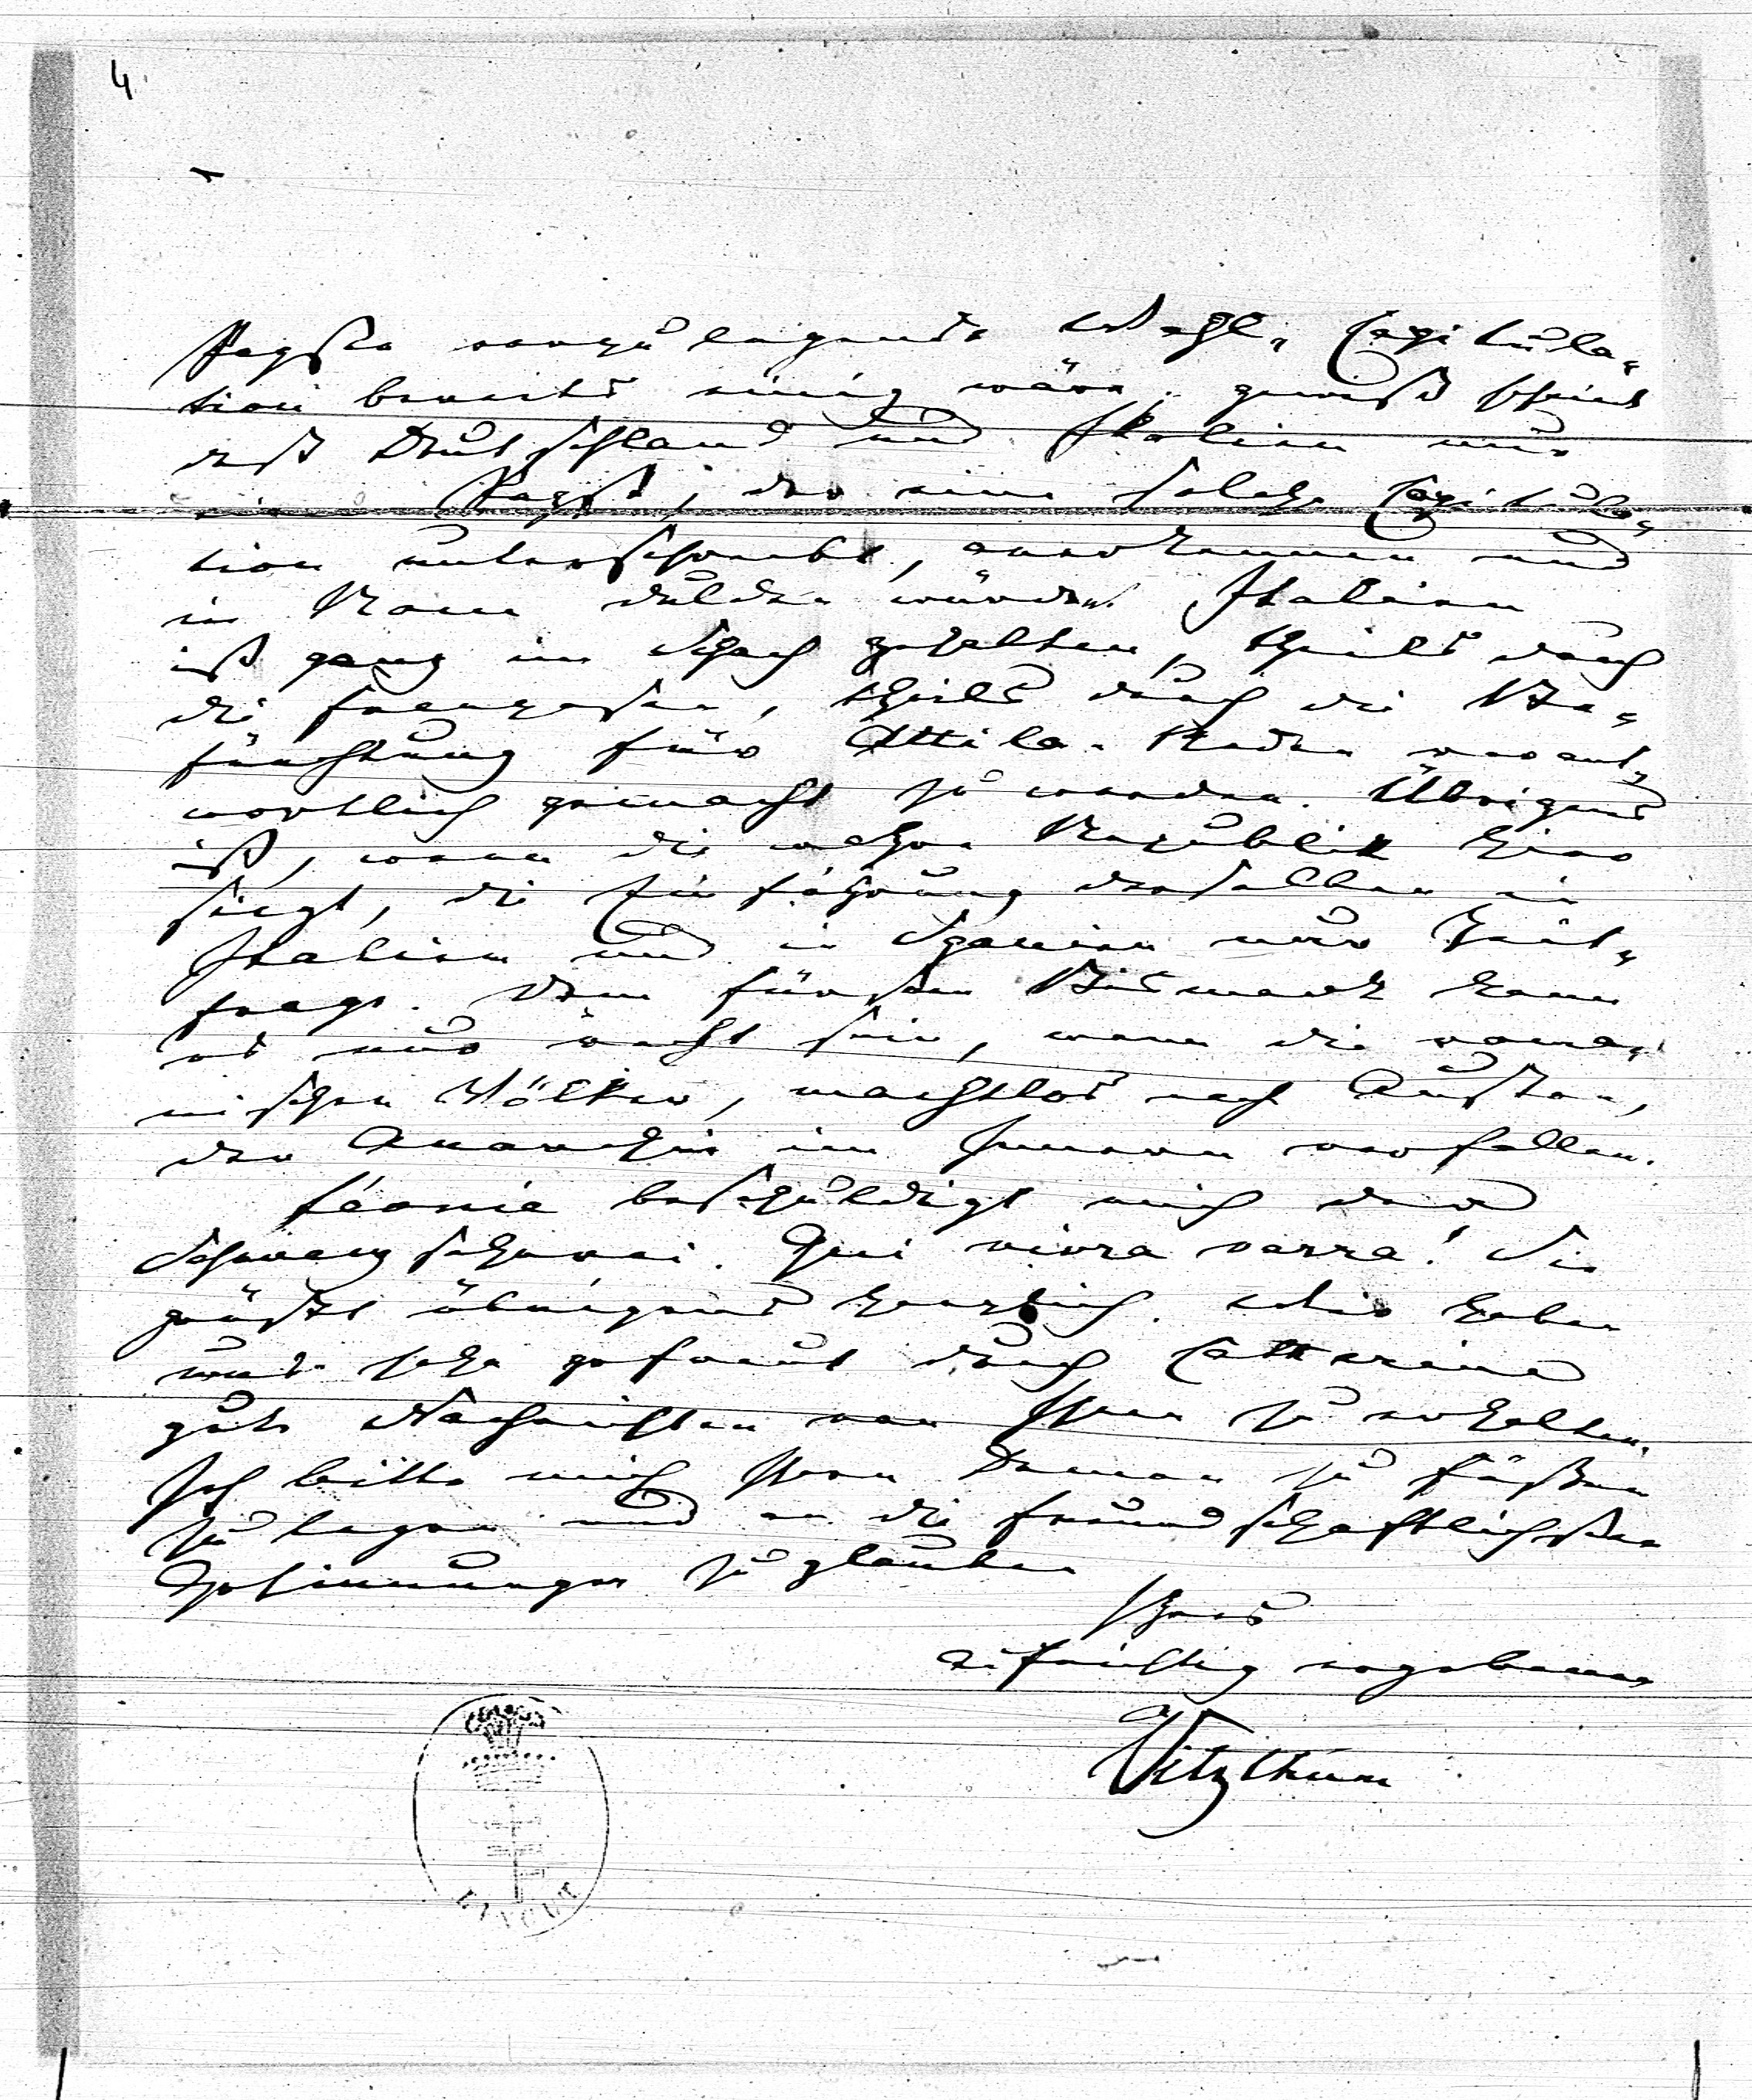 4.
Papste vorzulegende Wahl-Capitula-
tion bereits einig wäre. gewiß scheint
daß Deutschland und Italien nur
einen Papst, der eine solche Capitula-
tion unterschreibt, anerkennen und
in Rom dulden würden. Italien
ist ganz im Schach gehalten, theils durch
die Franzosen, theils durch die Be-
fürchtung für Attila-Reden verant-
wortlich gemacht zu werden. Übrigens
ist, wenn die wahre Republik hier
siegt, die Einführung derselben in
Italien und in Spanien nur Zeit-
frage. Dem Fürsten Bismarck kann
es nur recht sein, wenn die roma-
nischen Völker, machtlos nach Außen,
der Anarchie im Innern verfallen.
Léonie beschuldigt mich der
Schwarzseherei. Qui vivra verra! Sie
grüßt übrigens herzlich. Wir haben
uns sehr gefreut durch Catherine
gute Nachrichten von Ihnen zu erhalten.
Ich bitte mich Ihren Damen zu Füßen
zu legen und an die freundschaftlichsten
Gesinnungen zu glauben
Ihres
aufrichtig ergebenen
Vitzthum